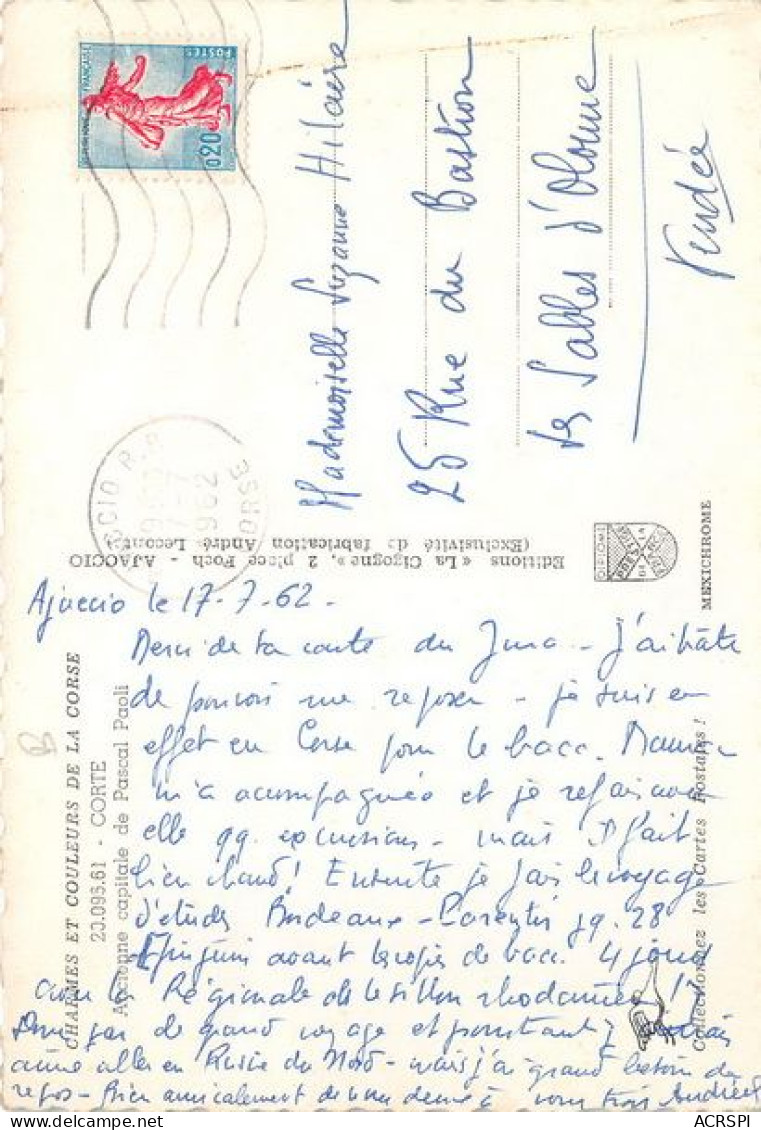 FRANÇAISE
POSTES
0,20
Mademoiselle Suzanne Hilaire
25 Rue du Bastion
Les Sables d'Olonne
Vendée
1962
CORSE
Editions « La Cigogne », 2 place Foch - AJACCIO
(Exclusivité de fabrication André Leconte)
MEXICHROME
CHARMES ET COULEURS DE LA CORSE
20.096.61 - CORTE
Ancienne capitale de Pascal Paoli
Collectionnez les Cartes Postales !
Ajaccio le 17.7.62 -
Merci de ta carte du Jura - J'ai hâte
de pouvoir me reposer - je suis en
effet en Corse pour le bacc. Maman
m'a accompagnée et je refais avec
elle qq. excursions - mais il fait
bien chaud ! Ensuite je fais le voyage
d'études Bordeaux - jq. 28
avant copies de bacc. 4 jours
avec la Régionale de le sillon rhodanien !
Donc pas de grand voyage et pourtant j'
aimé aller en Russie du Nord - mais j'ai grand besoin de
repos - Bien amicalement à vous trois Andrée
ACRSPI